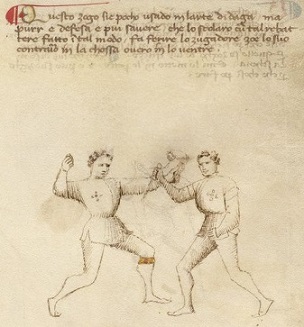 Questo zogo sie pocho usado in larte di daga, ma
purr e defesa e piu savere. che lo scolaro cu tal rebat
tere fatto i tal modo. fa ferire lo zugadore zoe lo suo
contrario in la chossa overo in lo ventre.